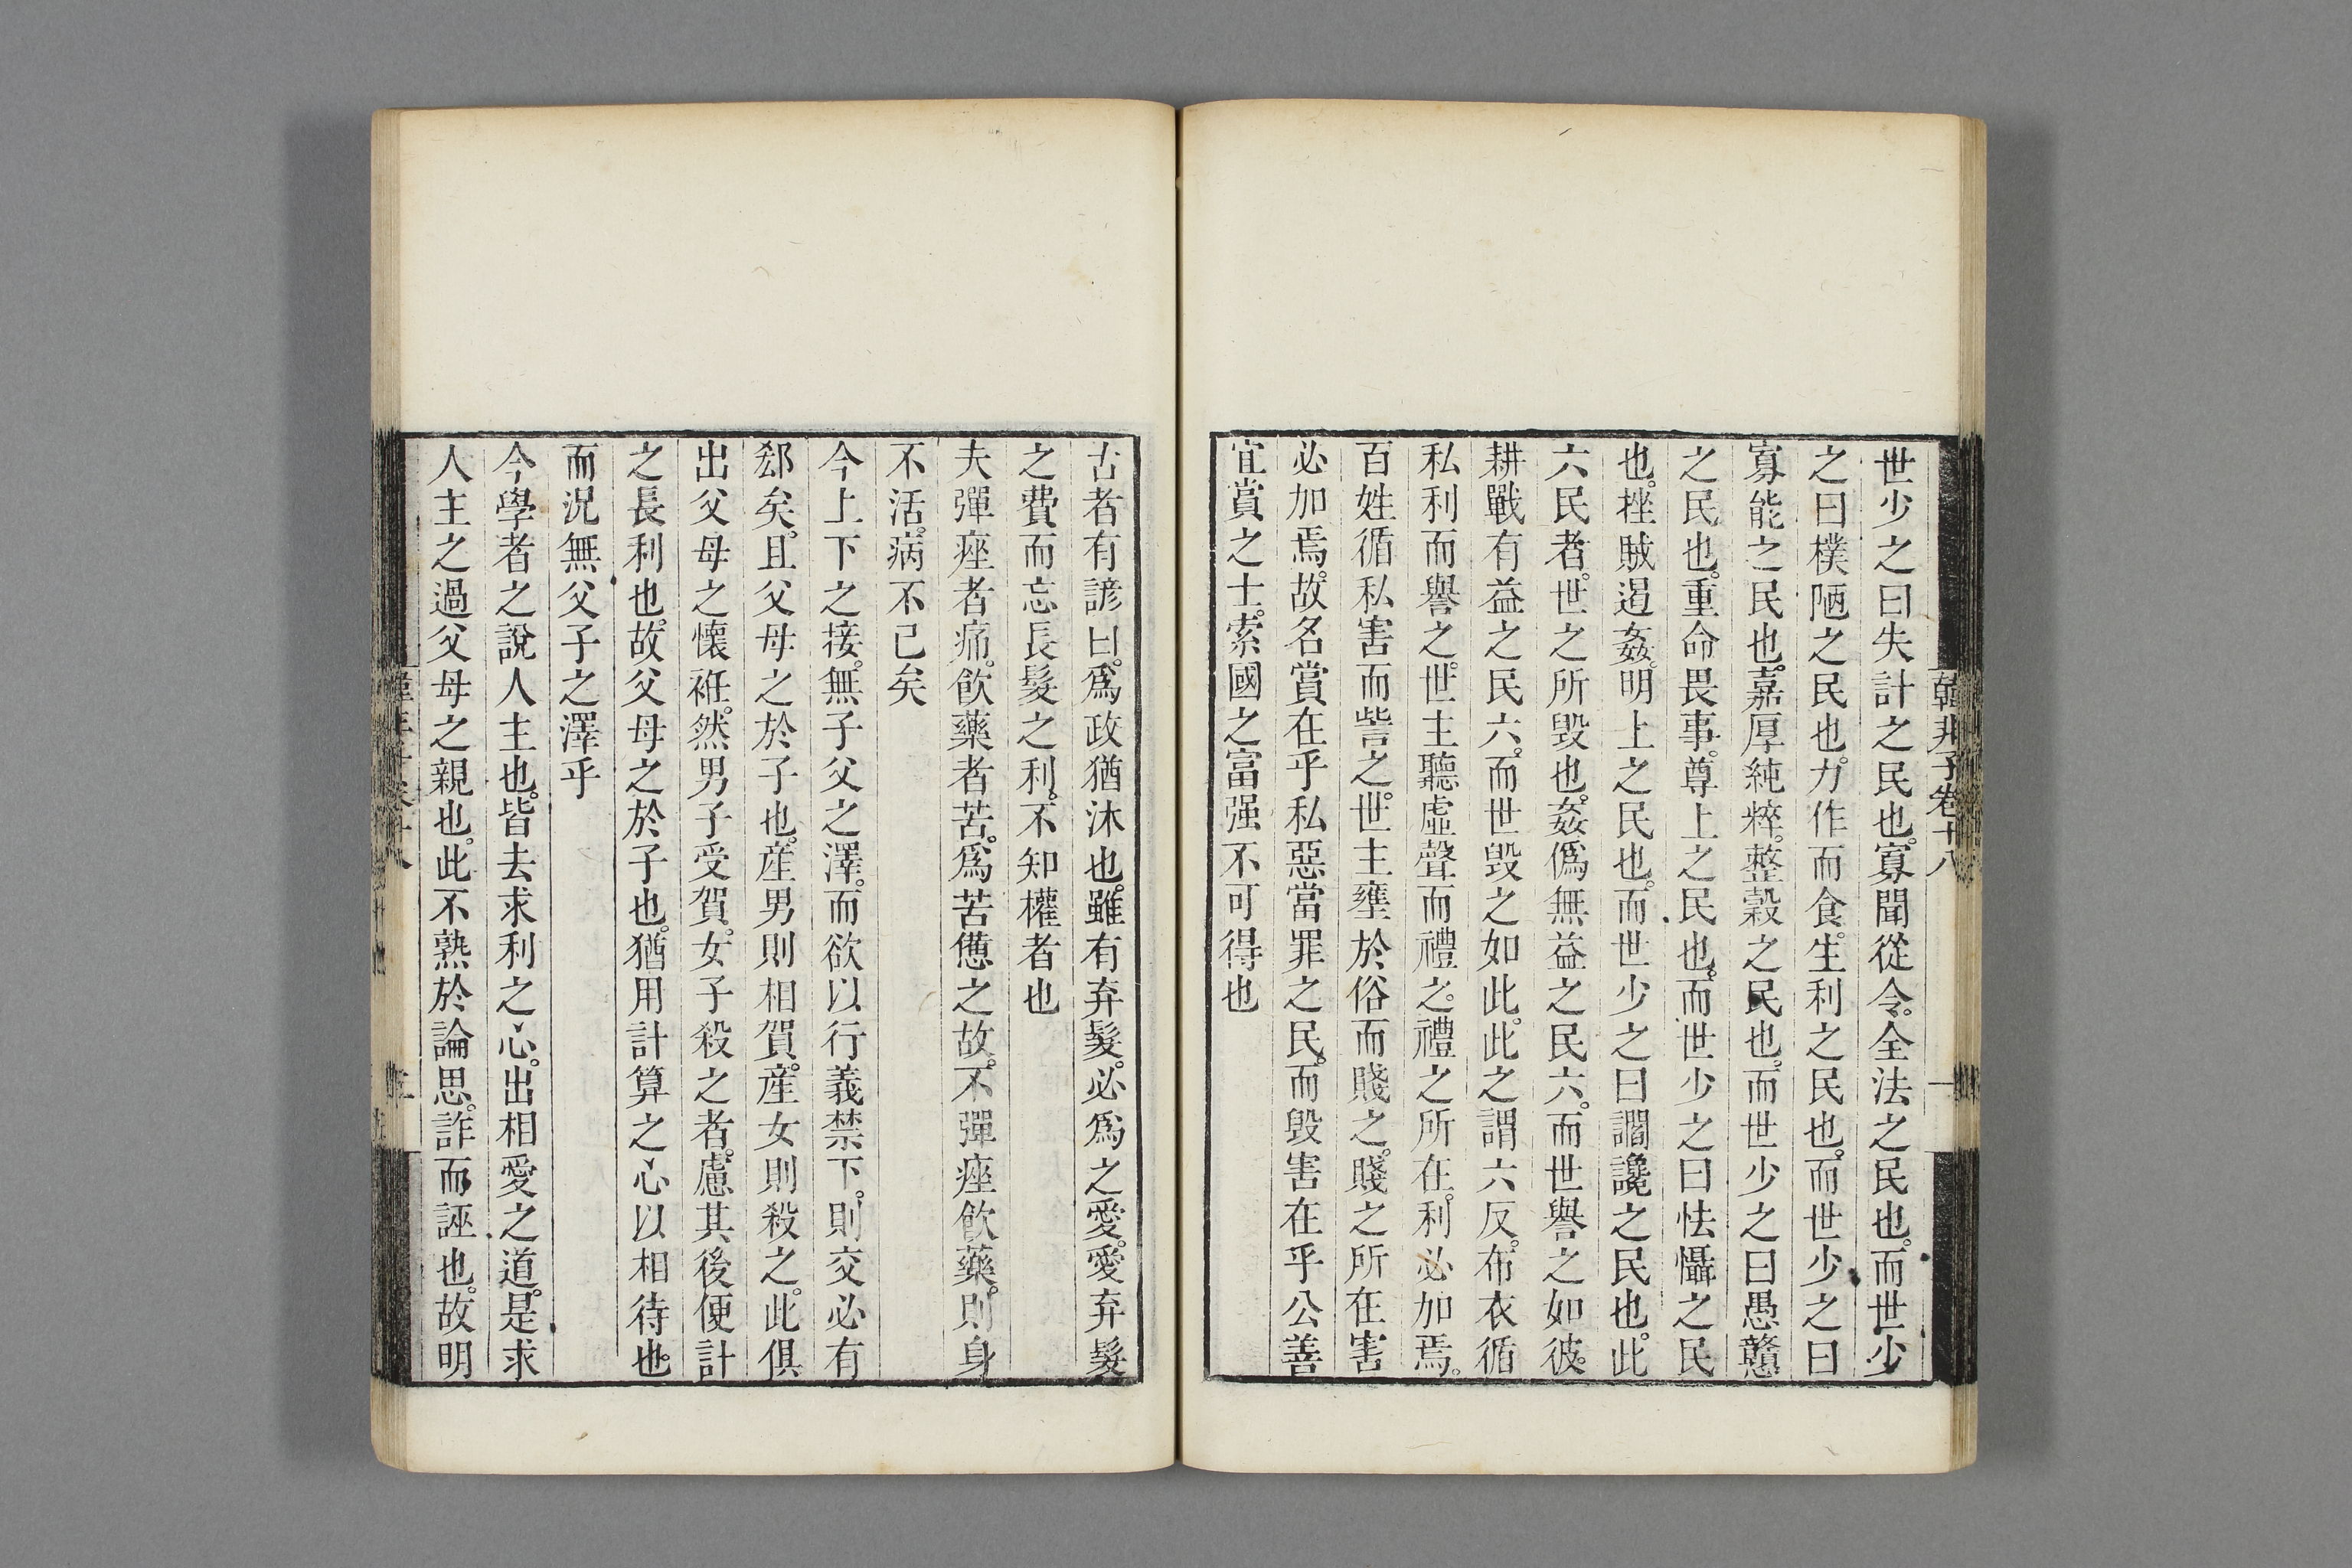 韓非子卷十八
世少之曰失計之民也。寡聞從令。全法之民也。而世少
之曰樸陋之民也。力作而食。生利之民也。而世少之曰
寡能之民也。嘉厚純粹。整穀之民也。而世少之曰愚戇
之民也。重命畏事。尊上之民也。而世少之曰怯懾之民
也。挫賊遏姦。明上之民也。而世少之曰讇讒之民也。此
六民者。世之所毀也。姦僞無益之民六。而世譽之如彼。
耕戰有益之民六。而世毀之如此。此之謂六反。布衣循
私利而譽之。世主聽虛聲而禮之。禮之所在。利必加焉。
百姓循私害而訾之。世主壅於俗而賤之。賤之所在害
必加焉。故名賞在乎私惡當罪之民。而毀害在乎公善
宜賞之士。索國之富强不可得也
古者有諺曰。爲政猶沐也。雖有弃髮。必爲之愛。愛弃髮
之費而忘長髮之利。不知權者也
夫彈痤者痛。飲藥者苦。爲苦憊之故。不彈痤飲藥。則身
不活。病不已矣
今上下之接。無子父之澤。而欲以行義禁下。則交必有
郄矣。且父母之於子也。産男則相賀。産女則殺之。此俱
出父母之懷衽。然男子受賀。女子殺之者。慮其後便計
之長利也。故父母之於子也。猶用計算之心以相待也。
而況無父子之澤乎
今學者之說人主也。皆去求利之心。出相愛之道。是求
人主之過父母之親也。此不熟於論思。詐而誣也。故明